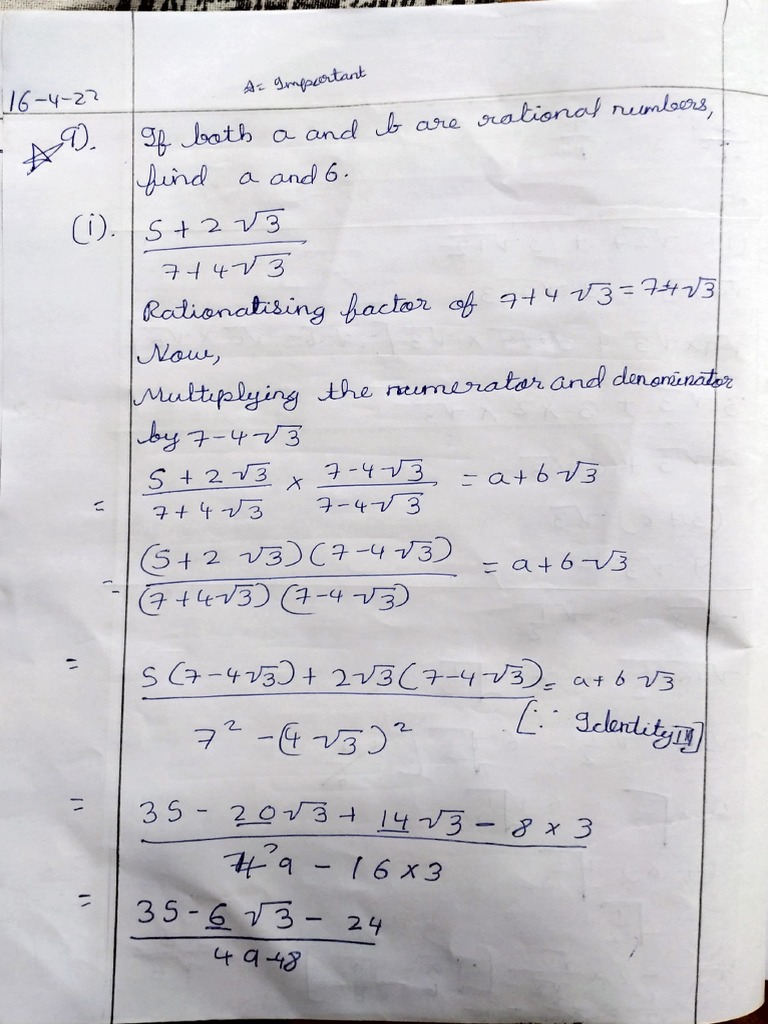 ☆= Important
16-4-22
☆ 9). If both a and b are rational numbers,
find a and b.
(i). 5+2√3
7+4√3
Rationalising factor of 7+4√3=7-4√3
Now,
Multiplying the numerator and denominator
by 7-4√3
= 5+2√3/7+4√3 × 7-4√3/7-4√3 = a+b√3
= (5+2√3)(7-4√3)/(7+4√3)(7-4√3) = a+b√3
= 5(7-4√3)+2√3(7-4√3) = a+b√3
7² -(4√3)² [∵ Identity III]
= 35-20√3+14√3-8×3
49-16×3
= 35-6√3-24
49-48